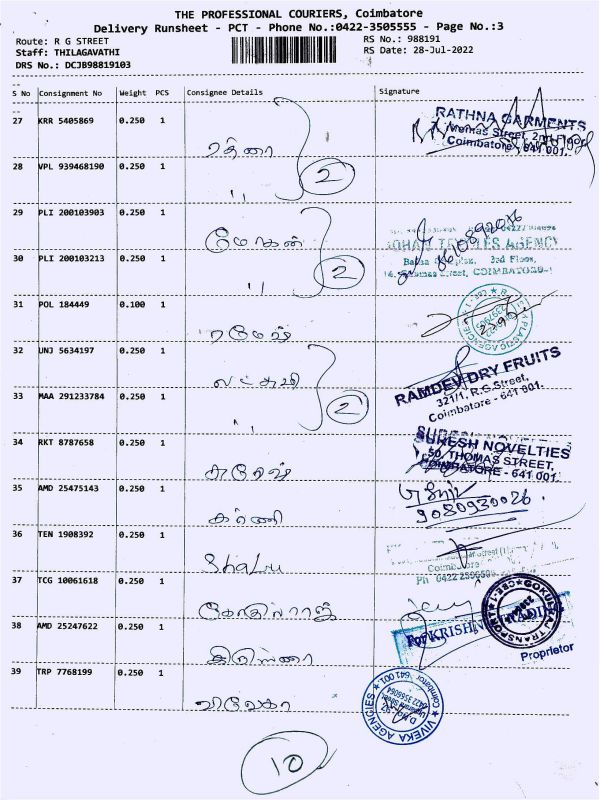 THE PROFESSIONAL COURIERS, Coimbatore
Delivery Runsheet - PCT - Phone No.:0422-3505555 - Page No.:3
Route: R G STREET
RS No.: 988191
Staff: THILAGAVATHI
RS Date: 28-Jul-2022
DRS No.: DCJB98819103
S No Consignment No Weight PCS Consignee Details Signature
27 KRR 5405869 0.250 1
ரத்னா
RATHNA GARMENTS
Thomas Street, 2nd Floor,
Coimbatore - 641 001.
28 VPL 939468190 0.250 1
" 2
29 PLI 200103903 0.250 1
மோகன்
8610892016
MOHAN TEXTILES AGENCY
3rd Floor,
Thomas Street, COIMBATORE-1
30 PLI 200103213 0.250 1
" 2
31 POL 184449 0.100 1
ரமேஷ்
PLASTIC AGENCIES
32 UNJ 5634197 0.250 1
லட்சுமி
RAMDEV DRY FRUITS
321/1, R.G.Street,
Coimbatore - 641 001.
33 MAA 291233784 0.250 1
" 2
34 RKT 8787658 0.250 1
சுரேஷ்
SURESH NOVELTIES
50, THOMAS STREET,
COIMBATORE - 641 001.
35 AMD 25475143 0.250 1
கர்ணி
9080930026
36 TEN 1908392 0.250 1
Shalu
Coimbatore
Ph 0422
37 TCG 10061618 0.250 1
கோகுல்ராஜ்
GOKULRAJ TRANSPORT ★ CBE-1
38 AMD 25247622 0.250 1
கிருஷ்ணா
For KRISHNA TRADING
Proprietor
39 TRP 7768199 0.250 1
விவேகா
VIVEKA AGENCIES ★ Coimbatore 641 001 ★
10